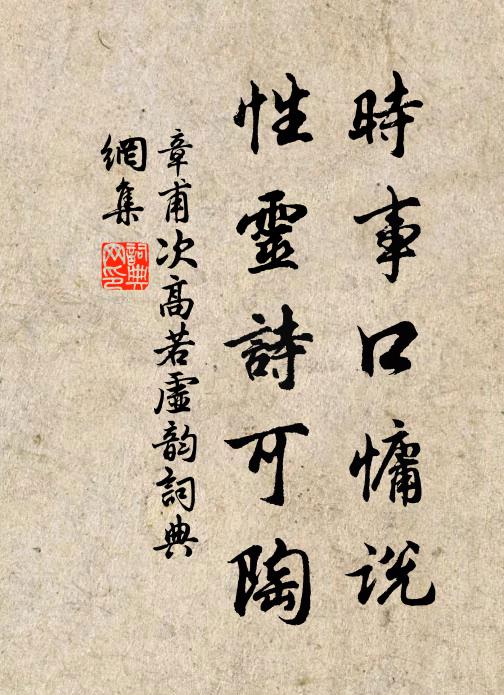 時事口慵説
性靈詩可陶
章甫次高若虛韵詞典
網集
詞典网印